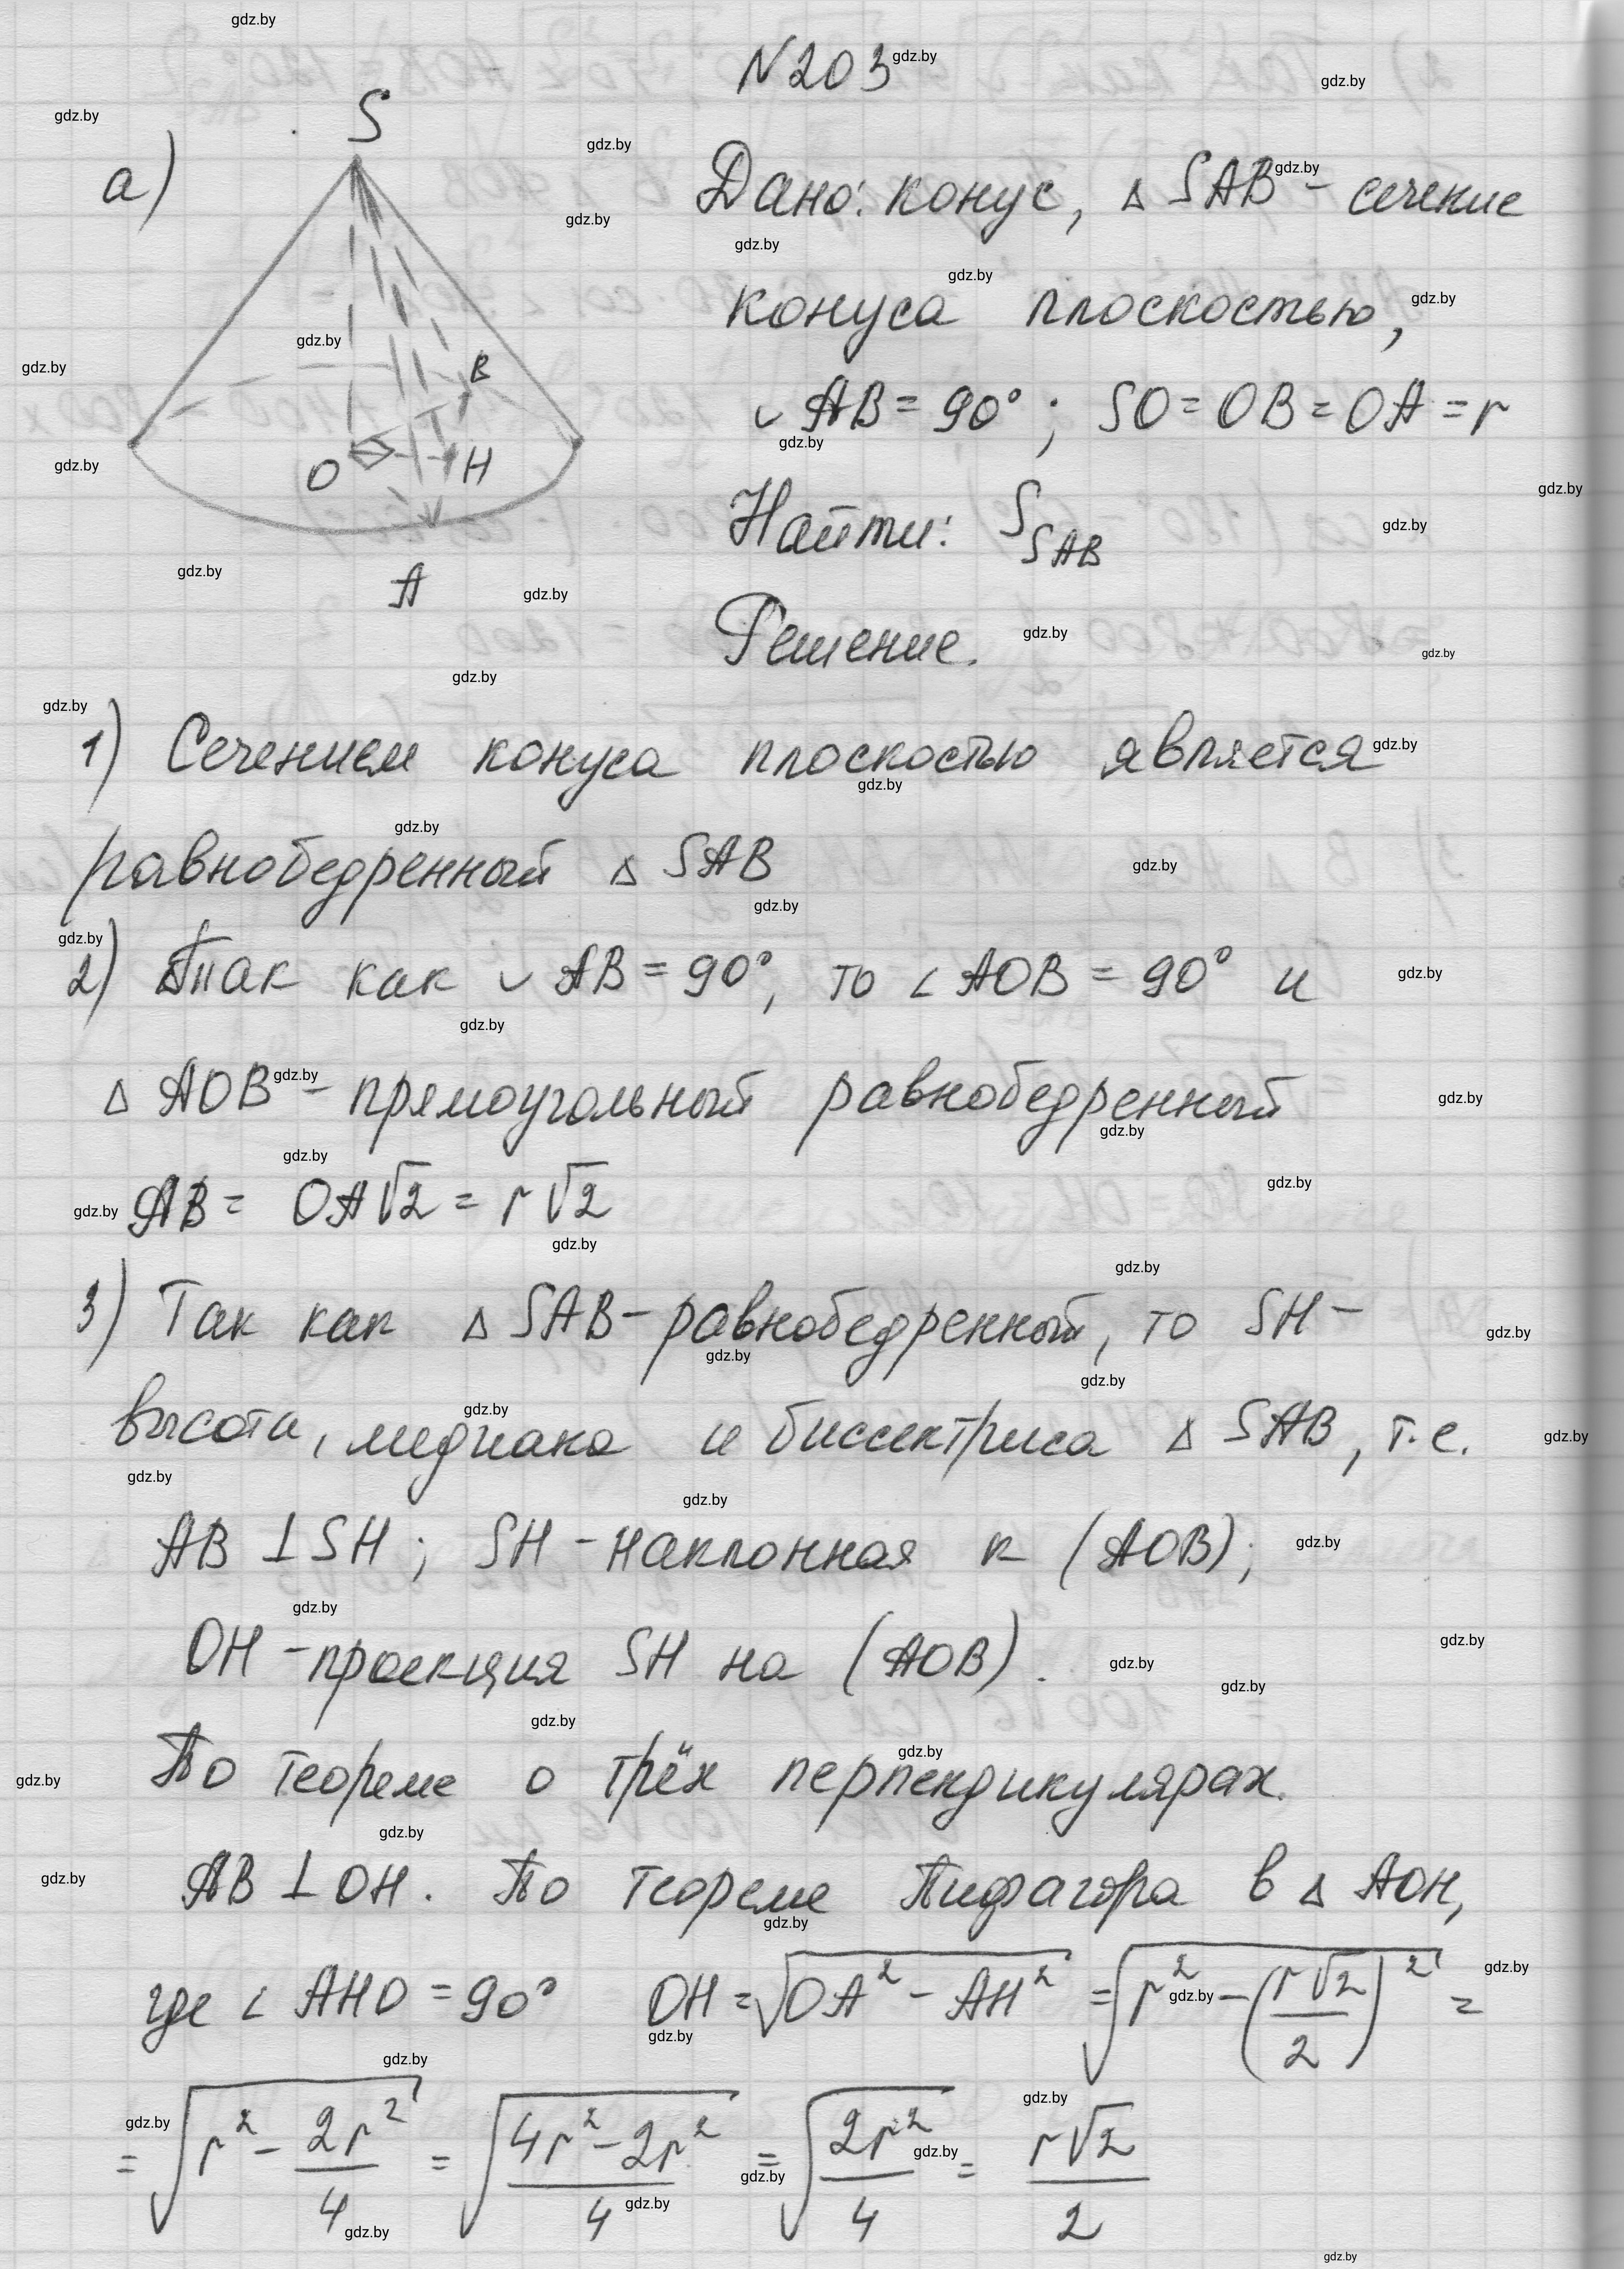 N203
а)
S
B
O
H
A
Дано: конус, △ SAB - сечение
конуса плоскостью,
◡ AB = 90°; SO = OB = OA = r
Найти: S_SAB
Решение.
1) Сечением конуса плоскостью является
равнобедренный △ SAB
2) Так как ◡ AB = 90°, то ∠ AOB = 90° и
△ AOB - прямоугольный равнобедренный
AB = OA√2 = r√2
3) Так как △ SAB - равнобедренный, то SH -
высота, медиана и биссектриса △ SAB, т.е.
AB ⊥ SH; SH - наклонная к (AOB);
OH - проекция SH на (AOB).
По теореме о трёх перпендикулярах.
AB ⊥ OH. По теореме Пифагора в △ AOH,
где ∠ AHO = 90° OH = √(OA² - AH²) = √(r² - (r√2/2)²) =
= √(r² - 2r²/4) = √((4r² - 2r²)/4) = √(2r²/4) = r√2/2
gdz.by